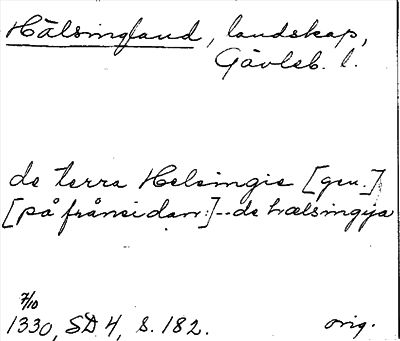 Hälsingland, landskap,
Gävleb. l.
de terra Helsingie [gen.]
[på frånsidan:]--de hælsingya
7/10
1330, SD 4, s. 182. orig.